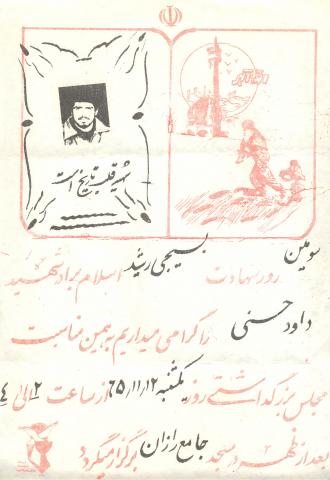 الله اکبر
شهید قلب تاریخ است
سومین روز شهادت بسیجی رشید اسلام برادر شهید
داود حسنی را گرامی میداریم به همین مناسبت
مجلس بزرگداشتی روز یکشنبه ۱۲ر۱۱ر۶۵ از ساعت ۲ الی ۴
بعد از ظهر در مسجد جامع رازان برگزار میگردد